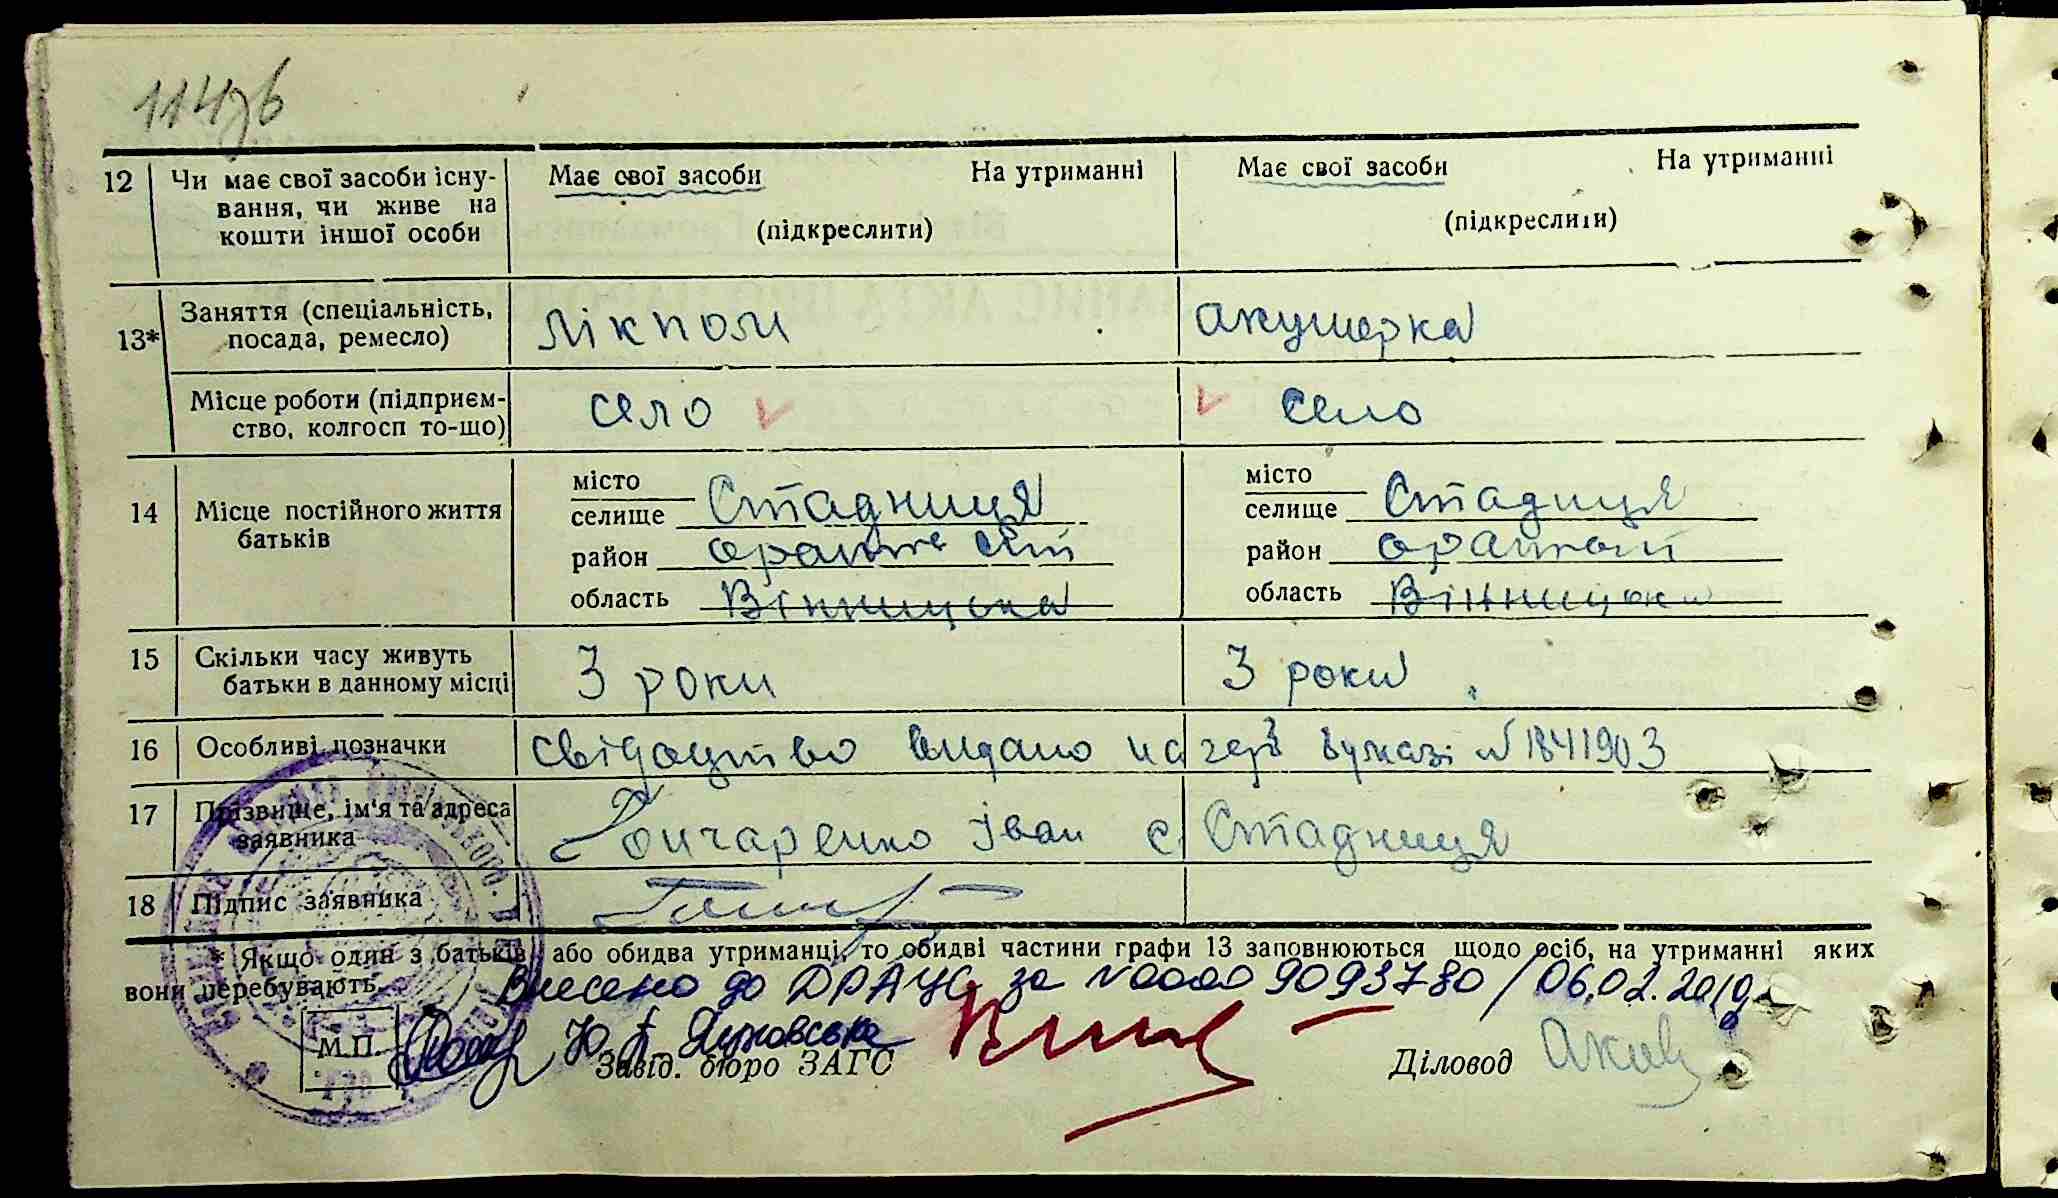 114зв
12 Чи має свої засоби існу- Має свої засоби На утриманні Має свої засоби На утриманні
вання, чи живе на
кошти іншої особи (підкреслити) (підкреслити)
13* Заняття (спеціальність, лікпом акушерка
посада, ремесло)
Місце роботи (підприєм- село село
ство, колгосп то-що)
14 Місце постійного життя батьків
місто
селище Стадниця
район
область Вінницька
місто
селище Стадниця
район
область Вінницька
15 Скільки часу живуть 3 роки 3 роки
батьки в данному місці
16 Особливі позначки свідоцтво видано на герб бумазі № 1841903
17 Прізвище, ім'я та адреса
заявника Гончаренко Іван с. Стадниця
18 Підпис заявника
* Якщо один з батьків або обидва утриманці, то обидві частини графи 13 заповнюються щодо осіб, на утриманні яких
вони перебувають.
Внесено до ДРАЦС за №000 9093780 / 06.02.2019р.
М.П.
Завід. бюро ЗАГС Діловод